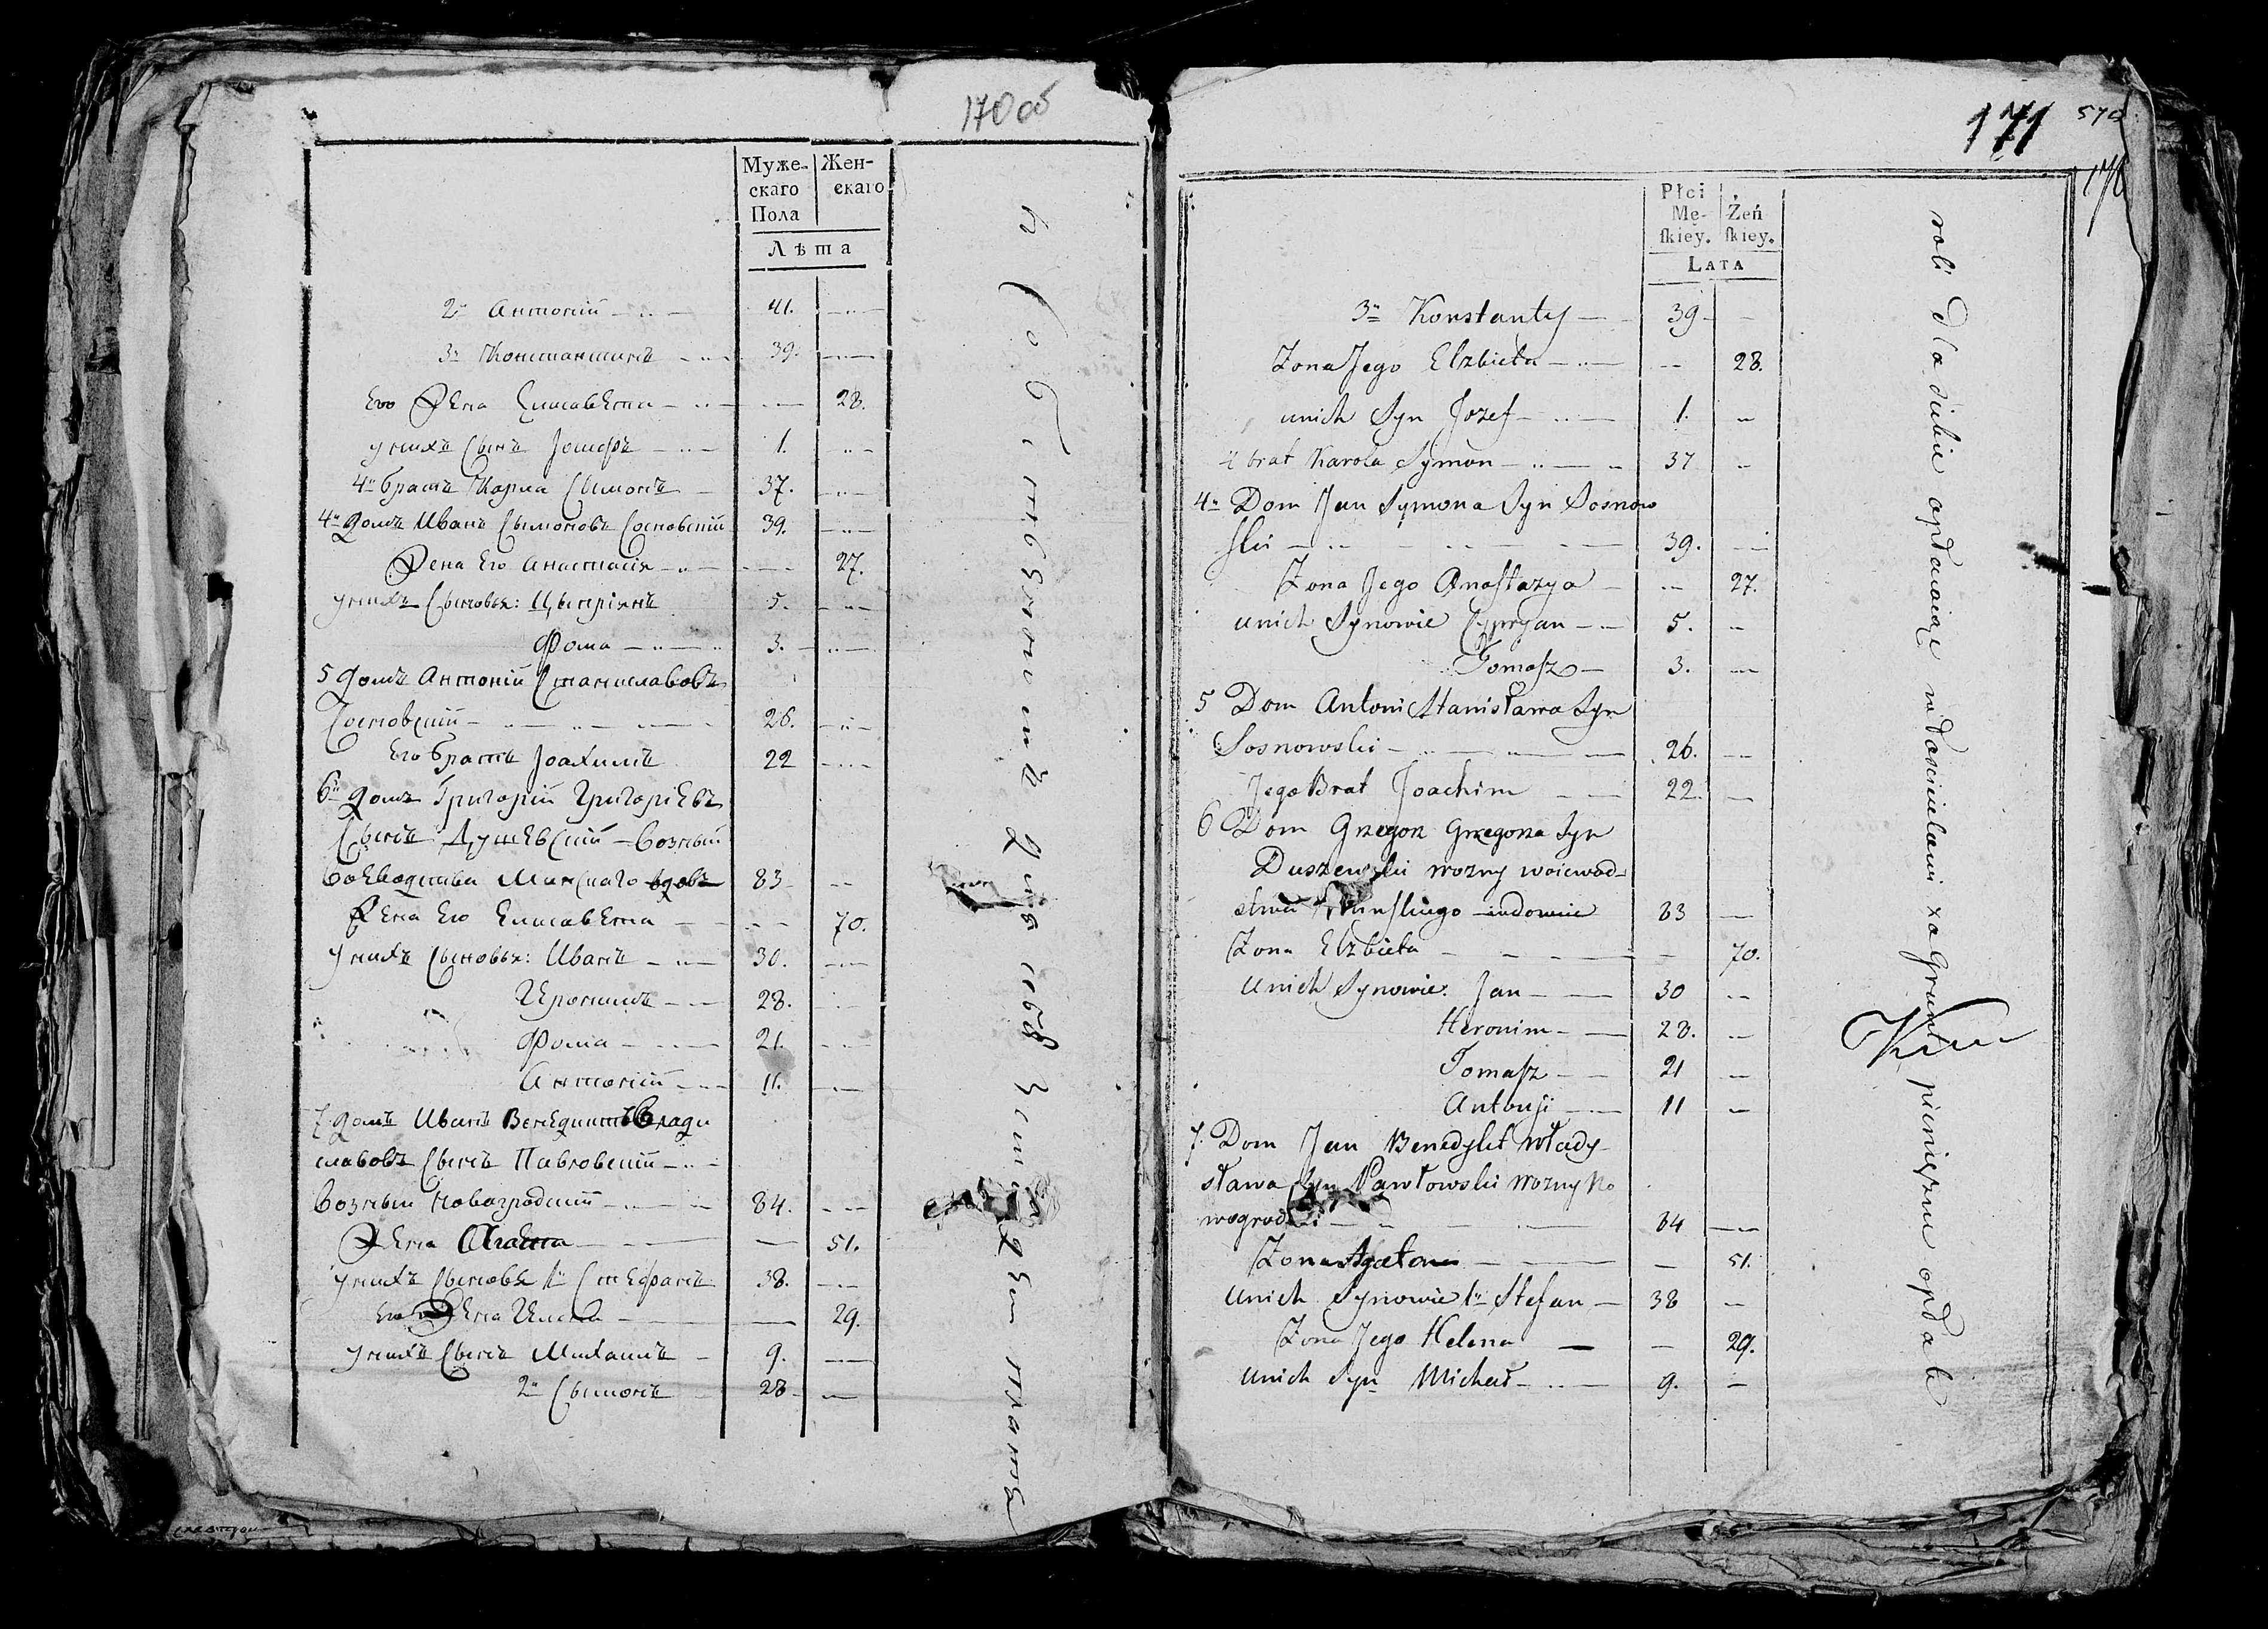 170 об
Муже-
скаго
Пола
Жен-
скаго
Лѣта
2й Антоній 41.
3й Константинъ 39.
Его Жена Елисавѣта 28.
у нихъ Сынъ Іозефъ 1.
4й братъ Карла Сымонъ 37.
4й домъ Иванъ Сымоновъ Сосновскій 39.
Жена Его Анастасія 27.
у нихъ Сыновья: Цыпріянъ 5.
Фома 3.
5 домъ Антоній Станиславовъ
Сосновскій 26.
Его братъ Іоахимъ 22
6й домъ Григорій Григоріевъ
Сынъ Душевскій возный
воеводства Минскаго вдовъ 83
Жена Его Елисавѣта 70.
у нихъ Сыновья: Иванъ 30.
Иронимъ 28.
Фома 21.
Антоній 11.
7 домъ Иванъ Бенедиктъ Влади
славовъ Сынъ Павловскій
возный Новогродскій 84.
Жена Агаѳа 51.
у нихъ Сыновья 1й Стефанъ 38.
Его Жена Илена 29.
у нихъ Сынъ Михаилъ 9.
2й Сымонъ 28
171
Płci
Mę-
ſkiey.
Żeń
ſkiey.
LATA
3й Konstanty 39
Zona Jego Elzbieta 28.
unich Syn Jozef 1.
4 brat Karola Symon 37
4й Dom Jan Symona Syn Sosnow
ski 39.
Zona Jego Anaſtazya 27.
unich Synowie Cypryan 5.
Tomaſz 3.
5 Dom Antoni Stanisława Syn
Sosnowski 26.
Jego Brat Joachim 22.
6 Dom Grzegorz Grzegorza Syn
Duszewski wozny woiewod-
stwa Minſkiego wdowiec 83
Zona Elzbieta 70.
unich Synowie. Jan 30
Heronim 28.
Tomaſz 21
Antonji 11
7. Dom Jan Benedykt Włady-
sława Syn Pawłowski wozny No
wogrodzki 84
Zona Agata 51.
unich Synowie 1й Stefan 38
Zona Jego Helena 29.
unich Syn Michał 9.
roli dla siebie opłacaiąc właścicielami za Grunt pienięzne opłate